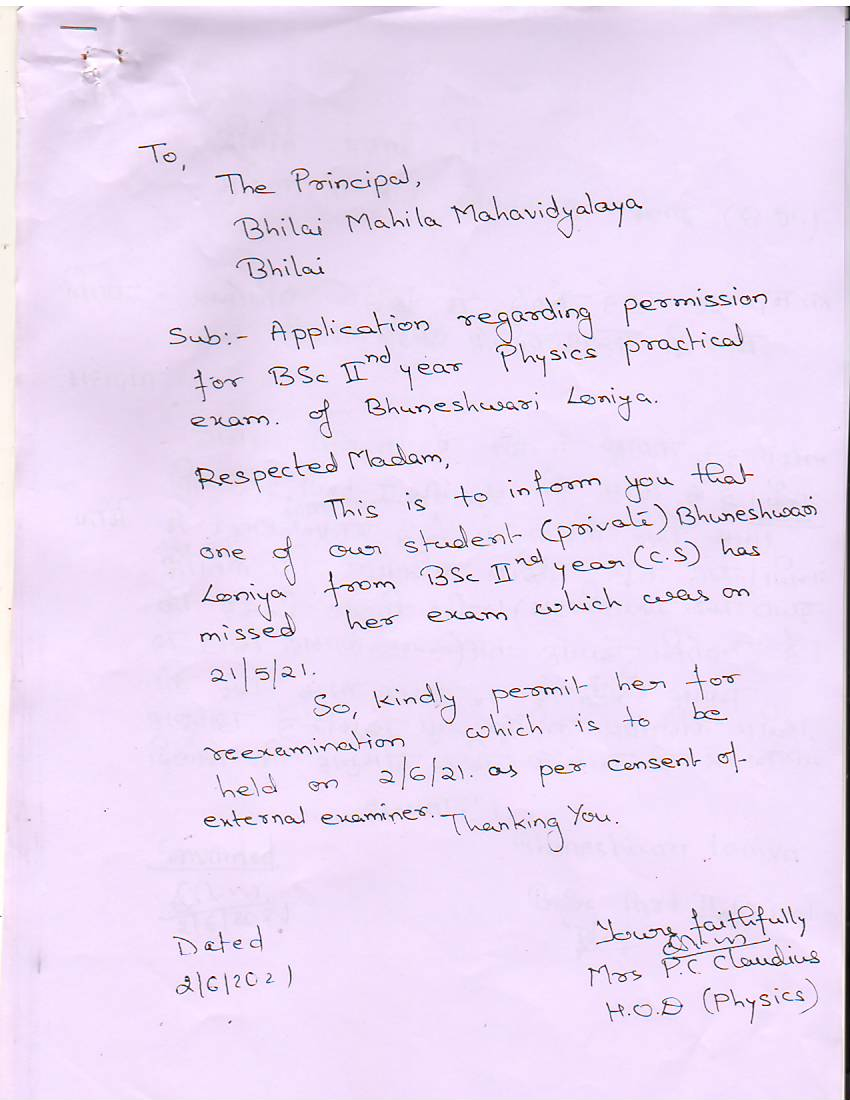 To,
The Principal,
Bhilai Mahila Mahavidyalaya
Bhilai
Sub:- Application regarding permission
for BSc IInd year Physics practical
exam. of Bhuneshwari Loniya.
Respected Madam,
This is to inform you that
one of our student (private) Bhuneshwari
Loniya from BSc IInd year (C.S) has
missed her exam which was on
21/5/21.
So, Kindly permit her for
reexamination which is to be
held on 2/6/21. as per consent of
external examiner. Thanking You.
Yours faithfully
Mrs P.C. Claudius
H.O.D (Physics)
Dated
2/6/2021